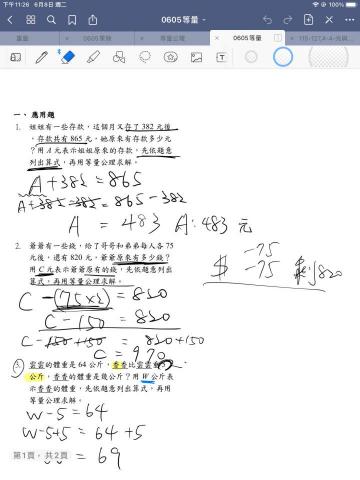 下午11:26 6月8日 週二
0605等量
0605等量
一、應用題
1. 姐姐有一些存款，這個月又存了382元後
，存款共有865元，她原來有存款多少元
？用A元表示姐姐原來的存款，先依題意
列出算式，再用等量公理求解。
A+382=865
A+382-382=865-382
A = 483 A:483元
2. 爺爺有一些錢，給了哥哥和弟弟每人各75
元後，還有820元，爺爺原來有多少錢？
用C元表示爺爺原有的錢，先依題意列出
算式，再用等量公理求解。
-75
$ -75 剩820
C-(75×2)=820
C-150=820
C-150+150=820+150
C=970
雲雲的體重是64公斤，香香比雲雲
公斤，香香的體重是幾公斤？用W公斤表
示香香的體重，先依題意列出算式，再用
等量公理求解。
W-5=64
W-5+5=64+5
=69
第1頁，共2頁